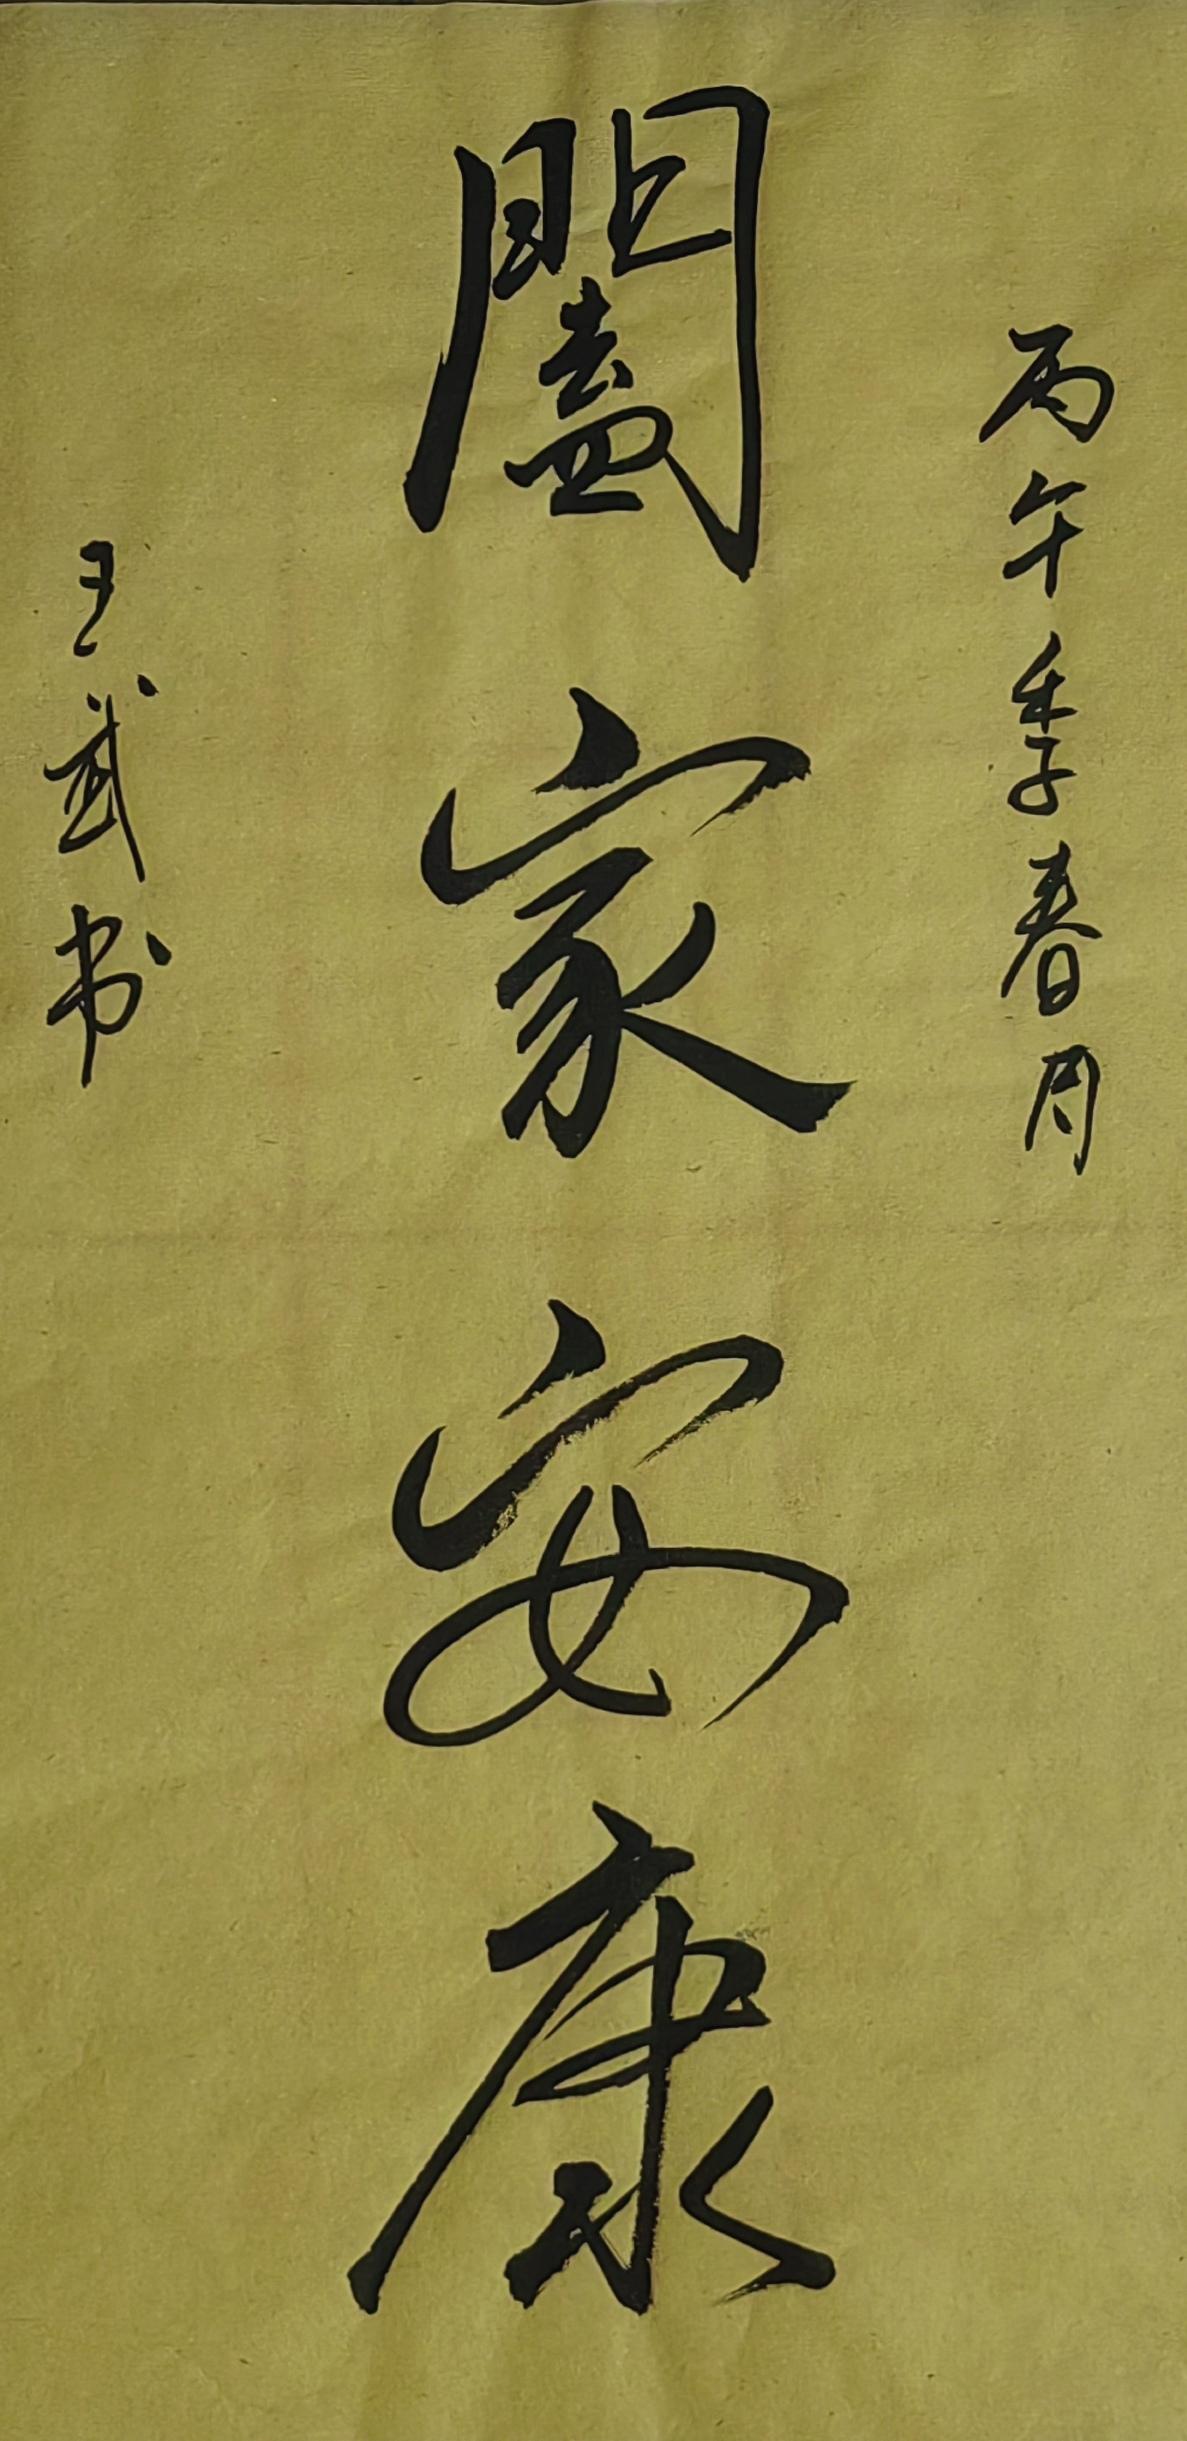 丙午季春月
闔家安康
王武书